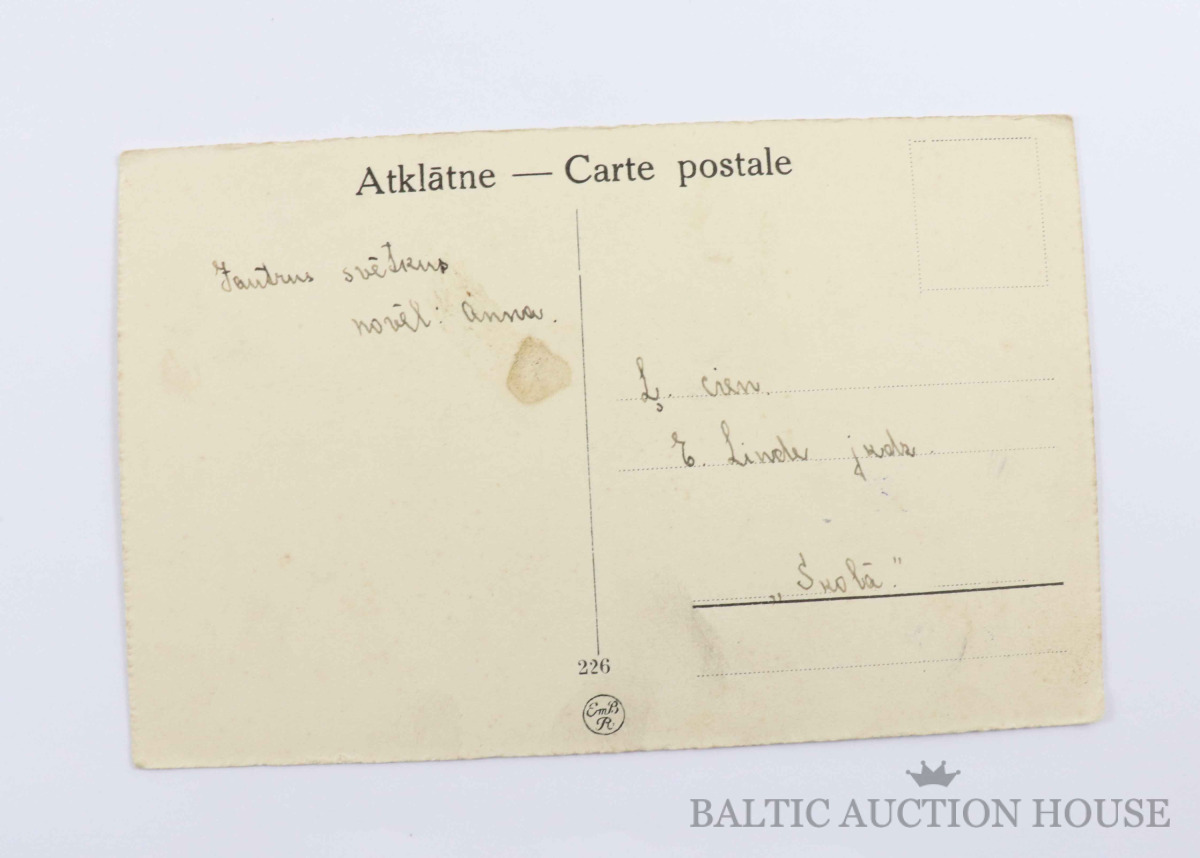 Atklātne — Carte postale
Jautrus svētkus
novēl: Anna.
Ļ. cien.
E. Linde jkdz.
„Skolā."
226
EmB
R
BALTIC AUCTION HOUSE